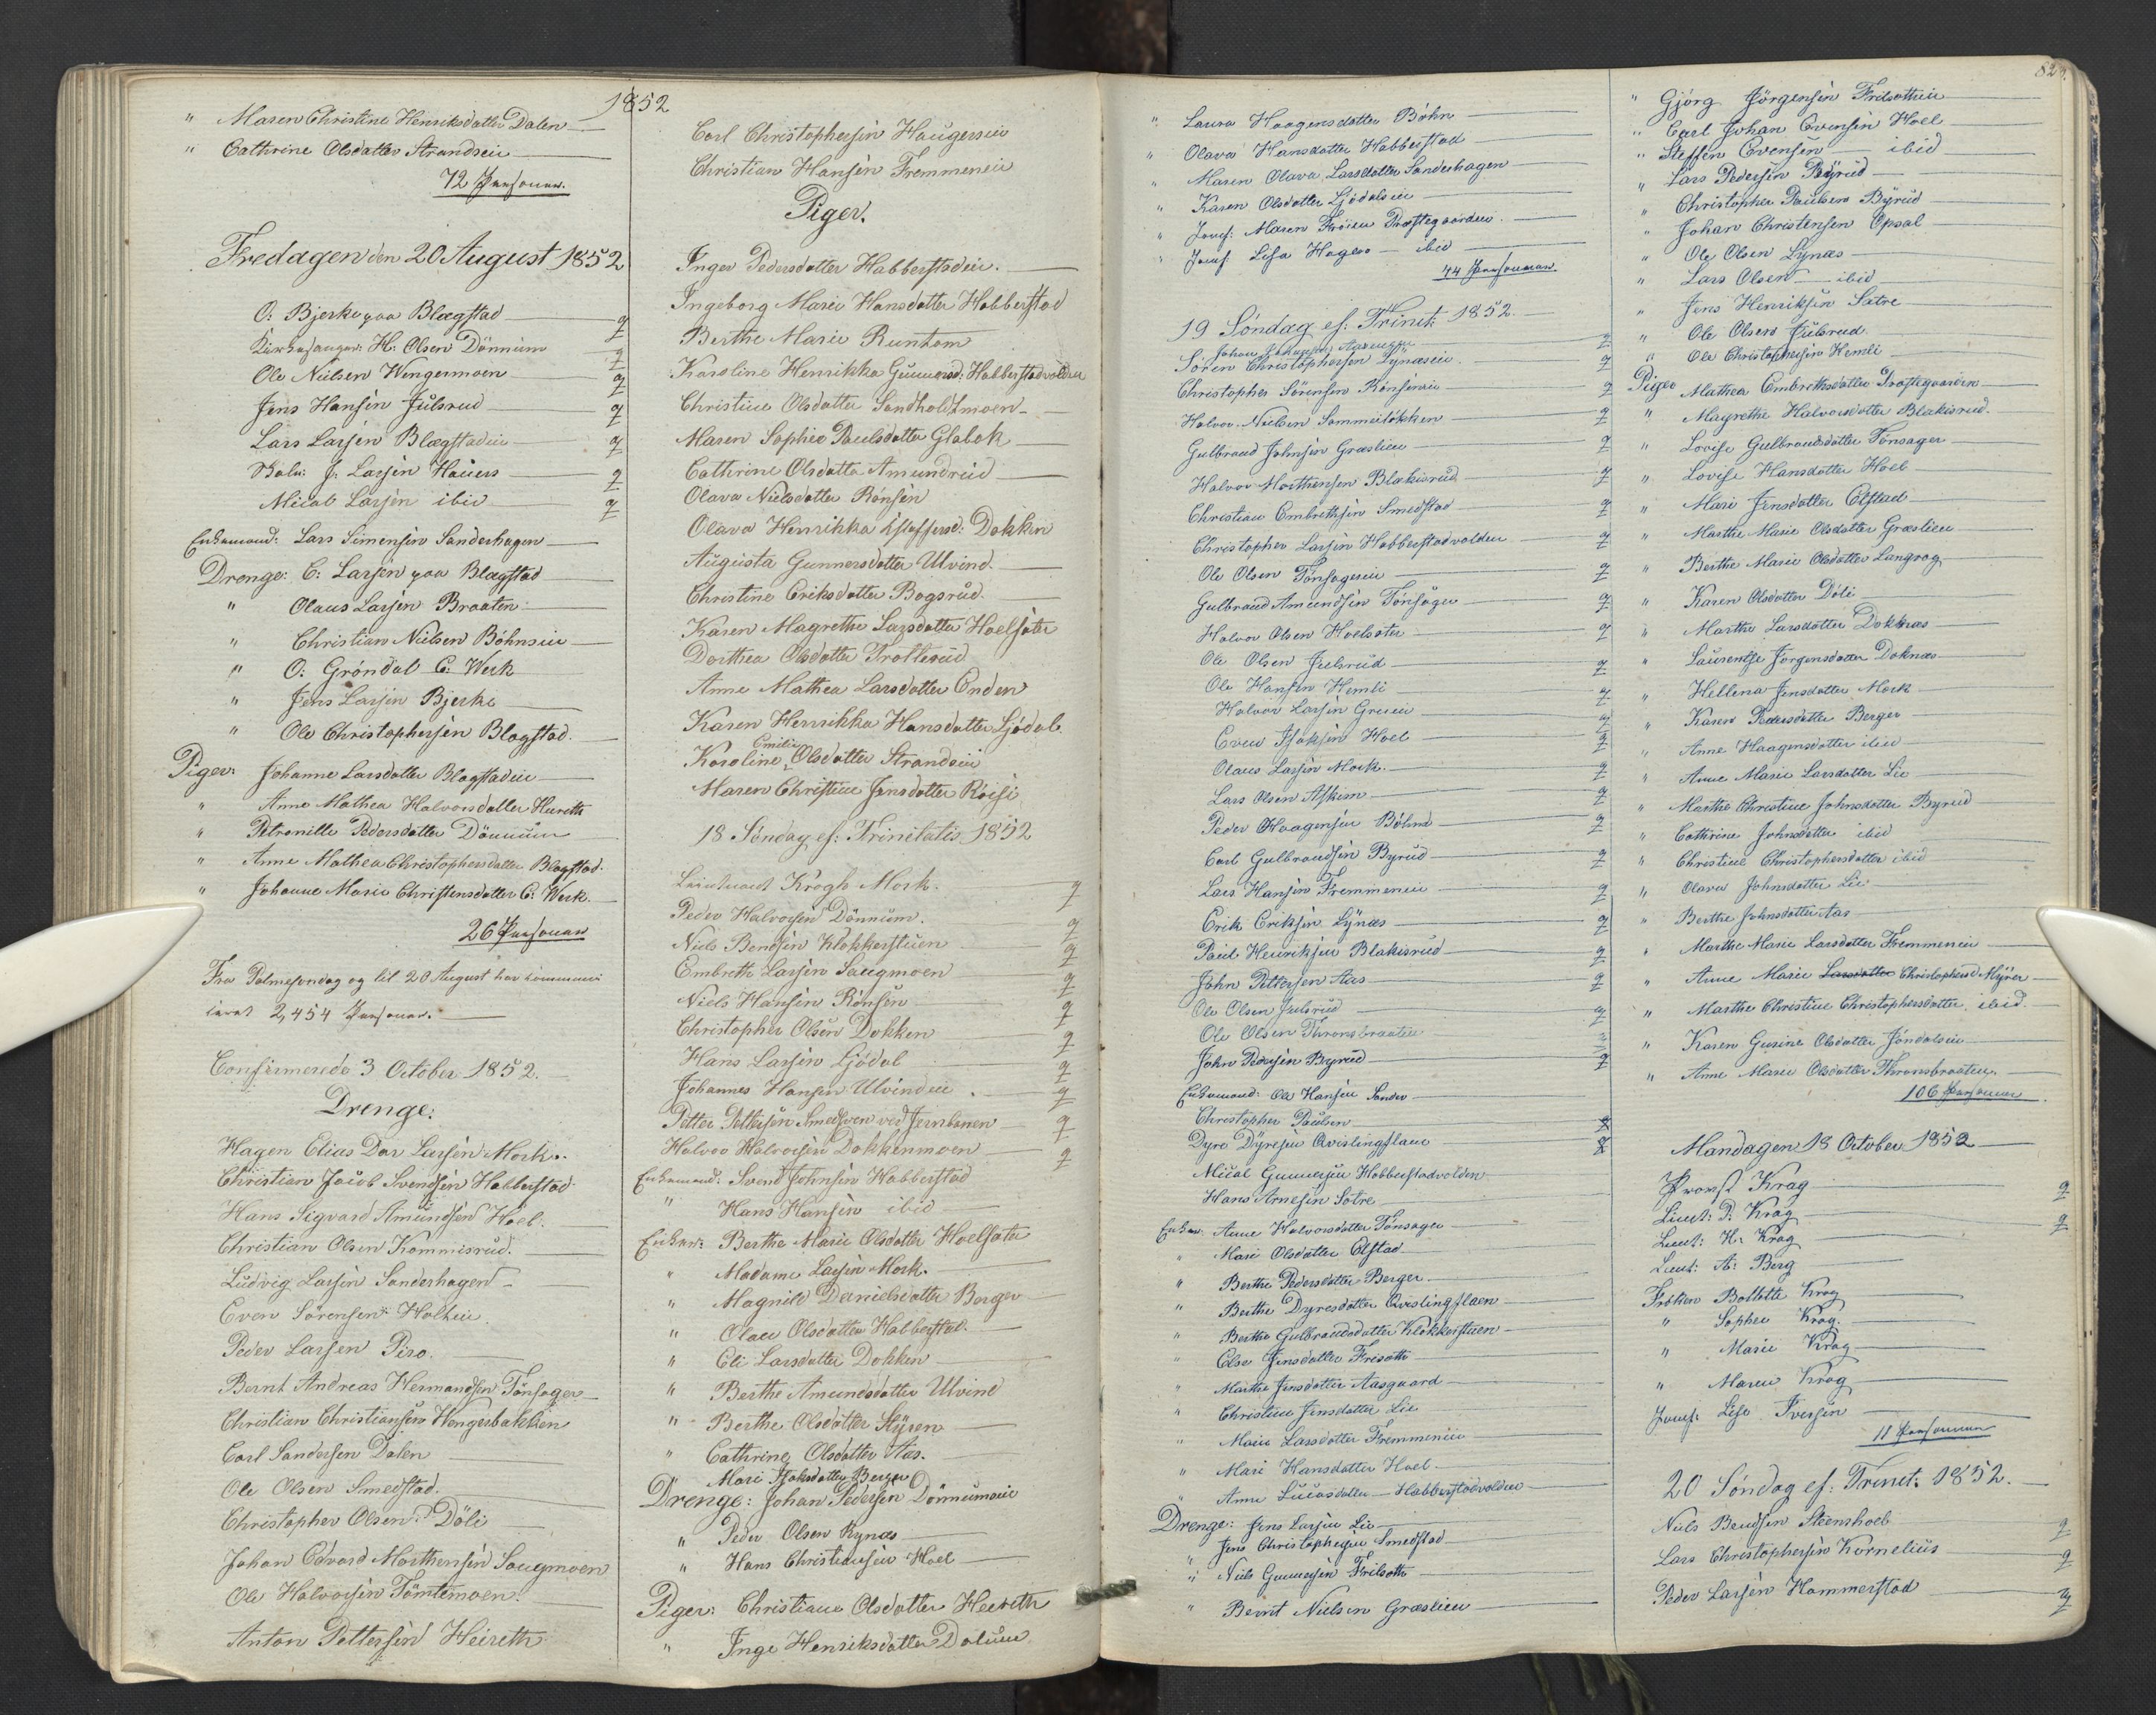 1852
" Maren Christine Henriksdatter Dalen
" Cathrine Olsdatter Strandeie
72 Personer.
Fredagen den 20 August 1852
O: Bjerke paa Blegstad q
Kirkesanger: H: Olsen Dönnum q
Ole Nielsen Wengermoen q
Jens Hansen Julsrud q
Lars Larsen Blegstadeie q
Skol: J: Larsen Hauers q
Micael Larsen ibid q
Enkemand: Lars Simensen Sanderhagen
Drenge: C: Larsen paa Blegstad
" Olaus Larsen Braaten
" Christian Nielsen Böhnseie
" O: Gröndal E: Werk
" Jens Larsen Bjerke
" Ole Christophersen Blegstad.
Piger: Johanne Larsdatter Blegstadeie
" Anne Mathea Halvorsdatter Hureth
" Petronille Pedersdatter Dönnum
" Anne Mathea Christophersdatter Blegstad.
" Johanne Marie Christensdatter E: Werk.
26 Personer
Fra Palmesöndag og til 20 August har communi-
ceret 2,454 Personer.
Confirmerede 3 October 1852.
Drenge:
Hagen Elias Dar Larsen Mork.
Christian Jacob Svendsen Habberstad
Hans Sigvard Amundsen Hoel.
Christian Olsen Kommisrud.
Ludvig Larsen Sanderhagen
Even Sörensen Holteie.
Peder Larsen Piro.
Bernt Andreas Hermandsen Tönsager
Christian Christiansen Hengerbakken
Carl Sandersen Dalen
Ole Olsen Smedstad.
Christopher Olsen Döli
Johan Edvard Morthensen Saugmoen
Ole Halvorsen Tömtemoen.
Anton Pettersen Heireth
Carl Christophersen Haugerseie
Christian Hansen Fremmeneie
Piger.
Inger Pedersdatter Habberstadeie.
Ingeborg Marie Hansdatter Habberstad
Berthe Marie Runhom
Karoline Henrikka Gunnersd: Habberstadvolden
Christine Olsdatter Sandholdtmoen
Maren Sophie Paulsdatter Glabek
Cathrine Olsdatter Amundrud
Olava Nielsdatter Rönsen
Olava Henrikka Staffersd: Dokken
Augusta Gunnersdatter Ulvind.
Christine Eriksdatter Bogsrud.
Karen Magrethe Larsdatter Hoelsæter
Dorthea Olsdatter Trollerud
Anne Mathea Larsdatter Enden
Karen Henrikka Hansdatter Ljödal.
Karoline Emilie Olsdatter Strandeie
Maren Christine Jensdatter Röise
18 Söndag ef: Trinitatis 1852
Leiutnant Krogh Mork. q
Peder Halvorsen Dönnum. q
Niels Bendsen Klokkerstuen q
Embreth Larsen Saugmoen q
Niels Hansen Rönsen q
Christopher Olsen Dokken q
Hans Larsen Ljödal q
Johannes Hansen Ulvindeie q
Petter Pettersen Smedsven ved Jernbanen q
Halvor Halvorsen Dokkenmoen q
Enkemand: Svend Johnsen Habberstad
" Hans Hansen ibid
Enker: Berthe Marie Olsdatter Hoelsæter
" Madame Larsen Mork.
" Magnild Danielsdatter Berger
" Olau Olsdatter Habberstad.
" Eli Larsdatter Dokken
" Berthe Amundsdatter Ulvind
" Berthe Olsdatter Styren
" Cathrine Olsdatter Aas.
Mari Isaksdatter Berger
Drenge: Johan Pedersen Dönnumeie
" Peder Olsen Rynæs
" Hans Christiansen Hoel
Piger: Christiane Olsdatter Heereth
" Inge Henriksdatter Dalum
82
" Laura Haagensdatter Böhn
" Olava Hansdatter Habberstad
" Maren Olava Larsdatter Sanderhagen
" Karen Olsdatter Ljödalseie
" Jomf: Maren Fröien Præstegaarden.
" Jomf: Lisa Hageso ibid
44 Personer.
19 Söndag ef: Trinit: 1852.
Johan Johannesen q
Sören Christophersen Lynæseie q
Christopher Sörensen Rönseneie q
Halvor Nielsen Sommerlökken q
Gulbrand Johnsen Græslien q
Halvor Morthensen Blakisrud q
Christian Embrethsen Smedstad q
Christopher Larsen Habberstadvolden q
Ole Olsen Tönsagereie q
Gulbrand Amundsen Tönsager q
Halvor Olsen Hoelsæter q
Ole Olsen Julsrud q
Ole Hansen Hemli q
Halvor Larsen Grüen q
Even Isaksen Hoel q
Olaus Larsen Mork. q
Lars Olsen Askim q
Peder Haagensen Böhn q
Carl Gulbrandsen Byrud q
Lars Hansen Fremmeneie q
Erik Eriksen Lynæs q
Paul Henriksen Blakisrud q
John Pettersen Aas q
Ole Olsen Julsrud q
Ole Olsen Thronsbraaten q
John Pedersen Byrud q
Enkemand: Ole Hansen Sander
Christopher Paulsen q
Dyre Dyresen Qvislingflaen q
Micael Gunnersen Habberstadvolden
Hans Arnesen Sætre
Enker: Anne Halvorsdatter Tönsager
" Mari Olsdatter Elstad
" Berthe Pedersdatter Berger.
" Berthe Dyresdatter Qvislingflaen
" Berthe Gulbrandsdatter Klokkerstuen
" Else Jensdatter Frisætti
" Marthe Jensdatter Aasgaard
" Christine Jensdatter Lie
" Marie Larsdatter Fremmeneie
" Mari Hansdatter Hoel
" Anne Lucasdatter Habberstadvolden
Drenge: Jens Larsen Lie
" Jens Christophersen Smedstad
" Niels Gunnersen Frilseth
" Bernt Nielsen Græslien
" Gjörg Jörgensen Frilsetheie
" Carl Johan Evensen Hoel
" Steffen Evensen ibid
" Lars Pedersen Byrud
" Christopher Paulsen Byrud
" Johan Christensen Opsal
" Ole Olsen Lynæs
" Lars Olsen ibid
" Jens Henriksen Sætre
" Ole Olsen Julsrud
" Ole Christophersen Hemli
Piger Mathea Embrethsdatter Præstegaarden
" Magrethe Halvorsdatter Blakisrud.
" Lovise Gulbrandsdatter Tönsager
" Lovise Hansdatter Hoel
" Mari Jensdatter Elstad
" Marthe Marie Olsdatter Græslien
" Berthe Marie Olsdatter Langrog
" Karen Olsdatter Döli
" Marthe Larsdatter Doknæs
" Laurentse Jörgensdatter Doknæs
" Hellena Jensdatter Mork
" Karen Pedersdatter Berger
" Anne Haagensdatter ibid
" Anne Marie Larsdatter Lie
" Marthe Christine Johnsdatter Byrud
" Cathrine Johnsdatter ibid
" Christine Christophersdatter ibid
" Olava Johnsdatter Lie
" Berthe Johnsdatter Aas
" Marthe Marie Larsdatter Fremmeneie
" Anne Marie Larsdatter Christophersd Myrer
" Marthe Christine Christophersdatter ibid.
" Karen Gurine Olsdatter Jöndalseie
" Anne Marie Olsdatter Thronsbraaten.
106 Personer
Mandagen 18 October 1852
Provst Krag q
Lieut: P: Krag q
Lieut: H: Krag
Lieut: A: Berg
Fröken Bollette Krag
" Sophie Krag.
" Marie Krag
" Maren Krag
Jomf: Lise Iversen
11 Personer
20 Söndag ef: Trinit: 1852.
Niels Bendsen Steenshoel q
Lars Christophersen Kornelius q
Peder Larsen Hammerstad q